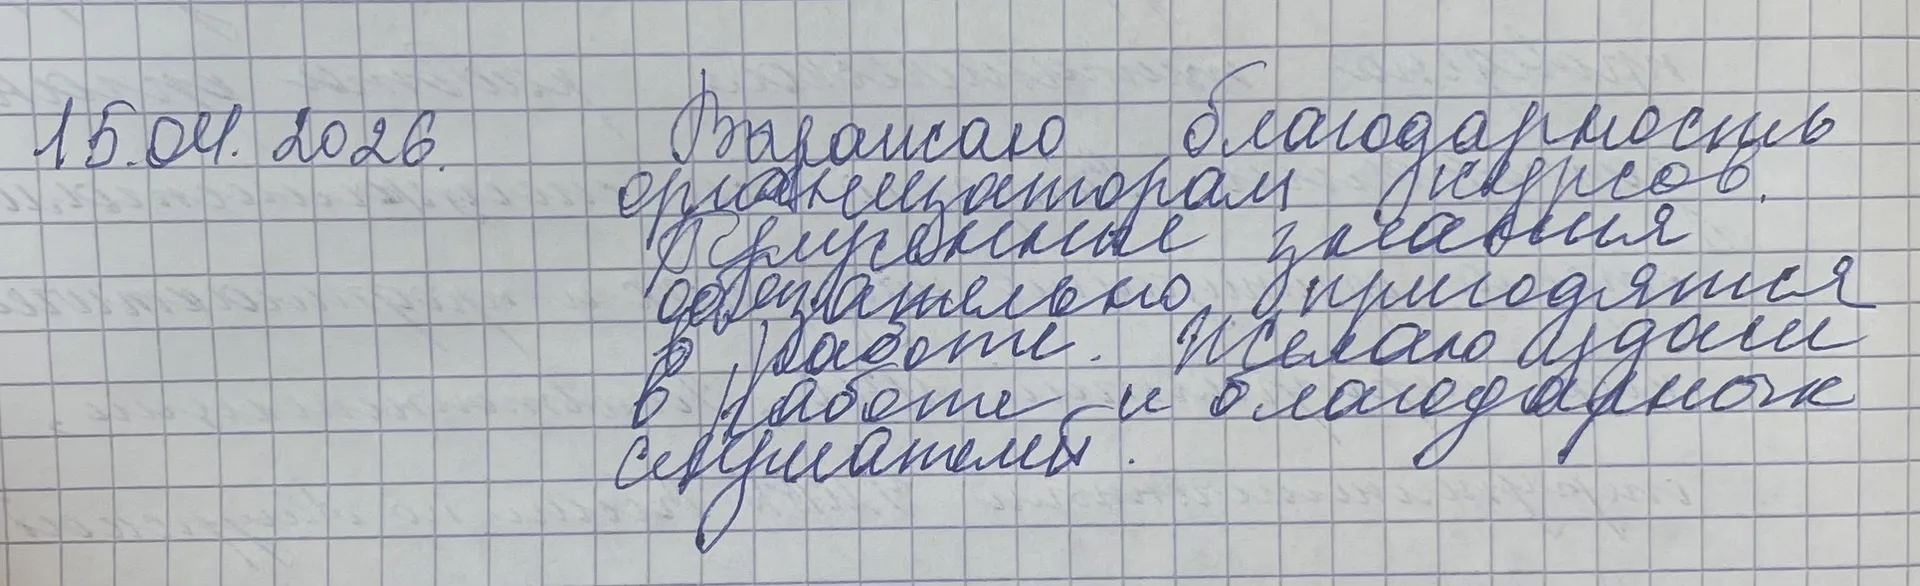 15.04.2026. Выражаю благодарность
организаторам курсов.
Полученные знания
обязательно пригодятся
в работе. Желаю удачи
в работе и благодарных
слушателей.